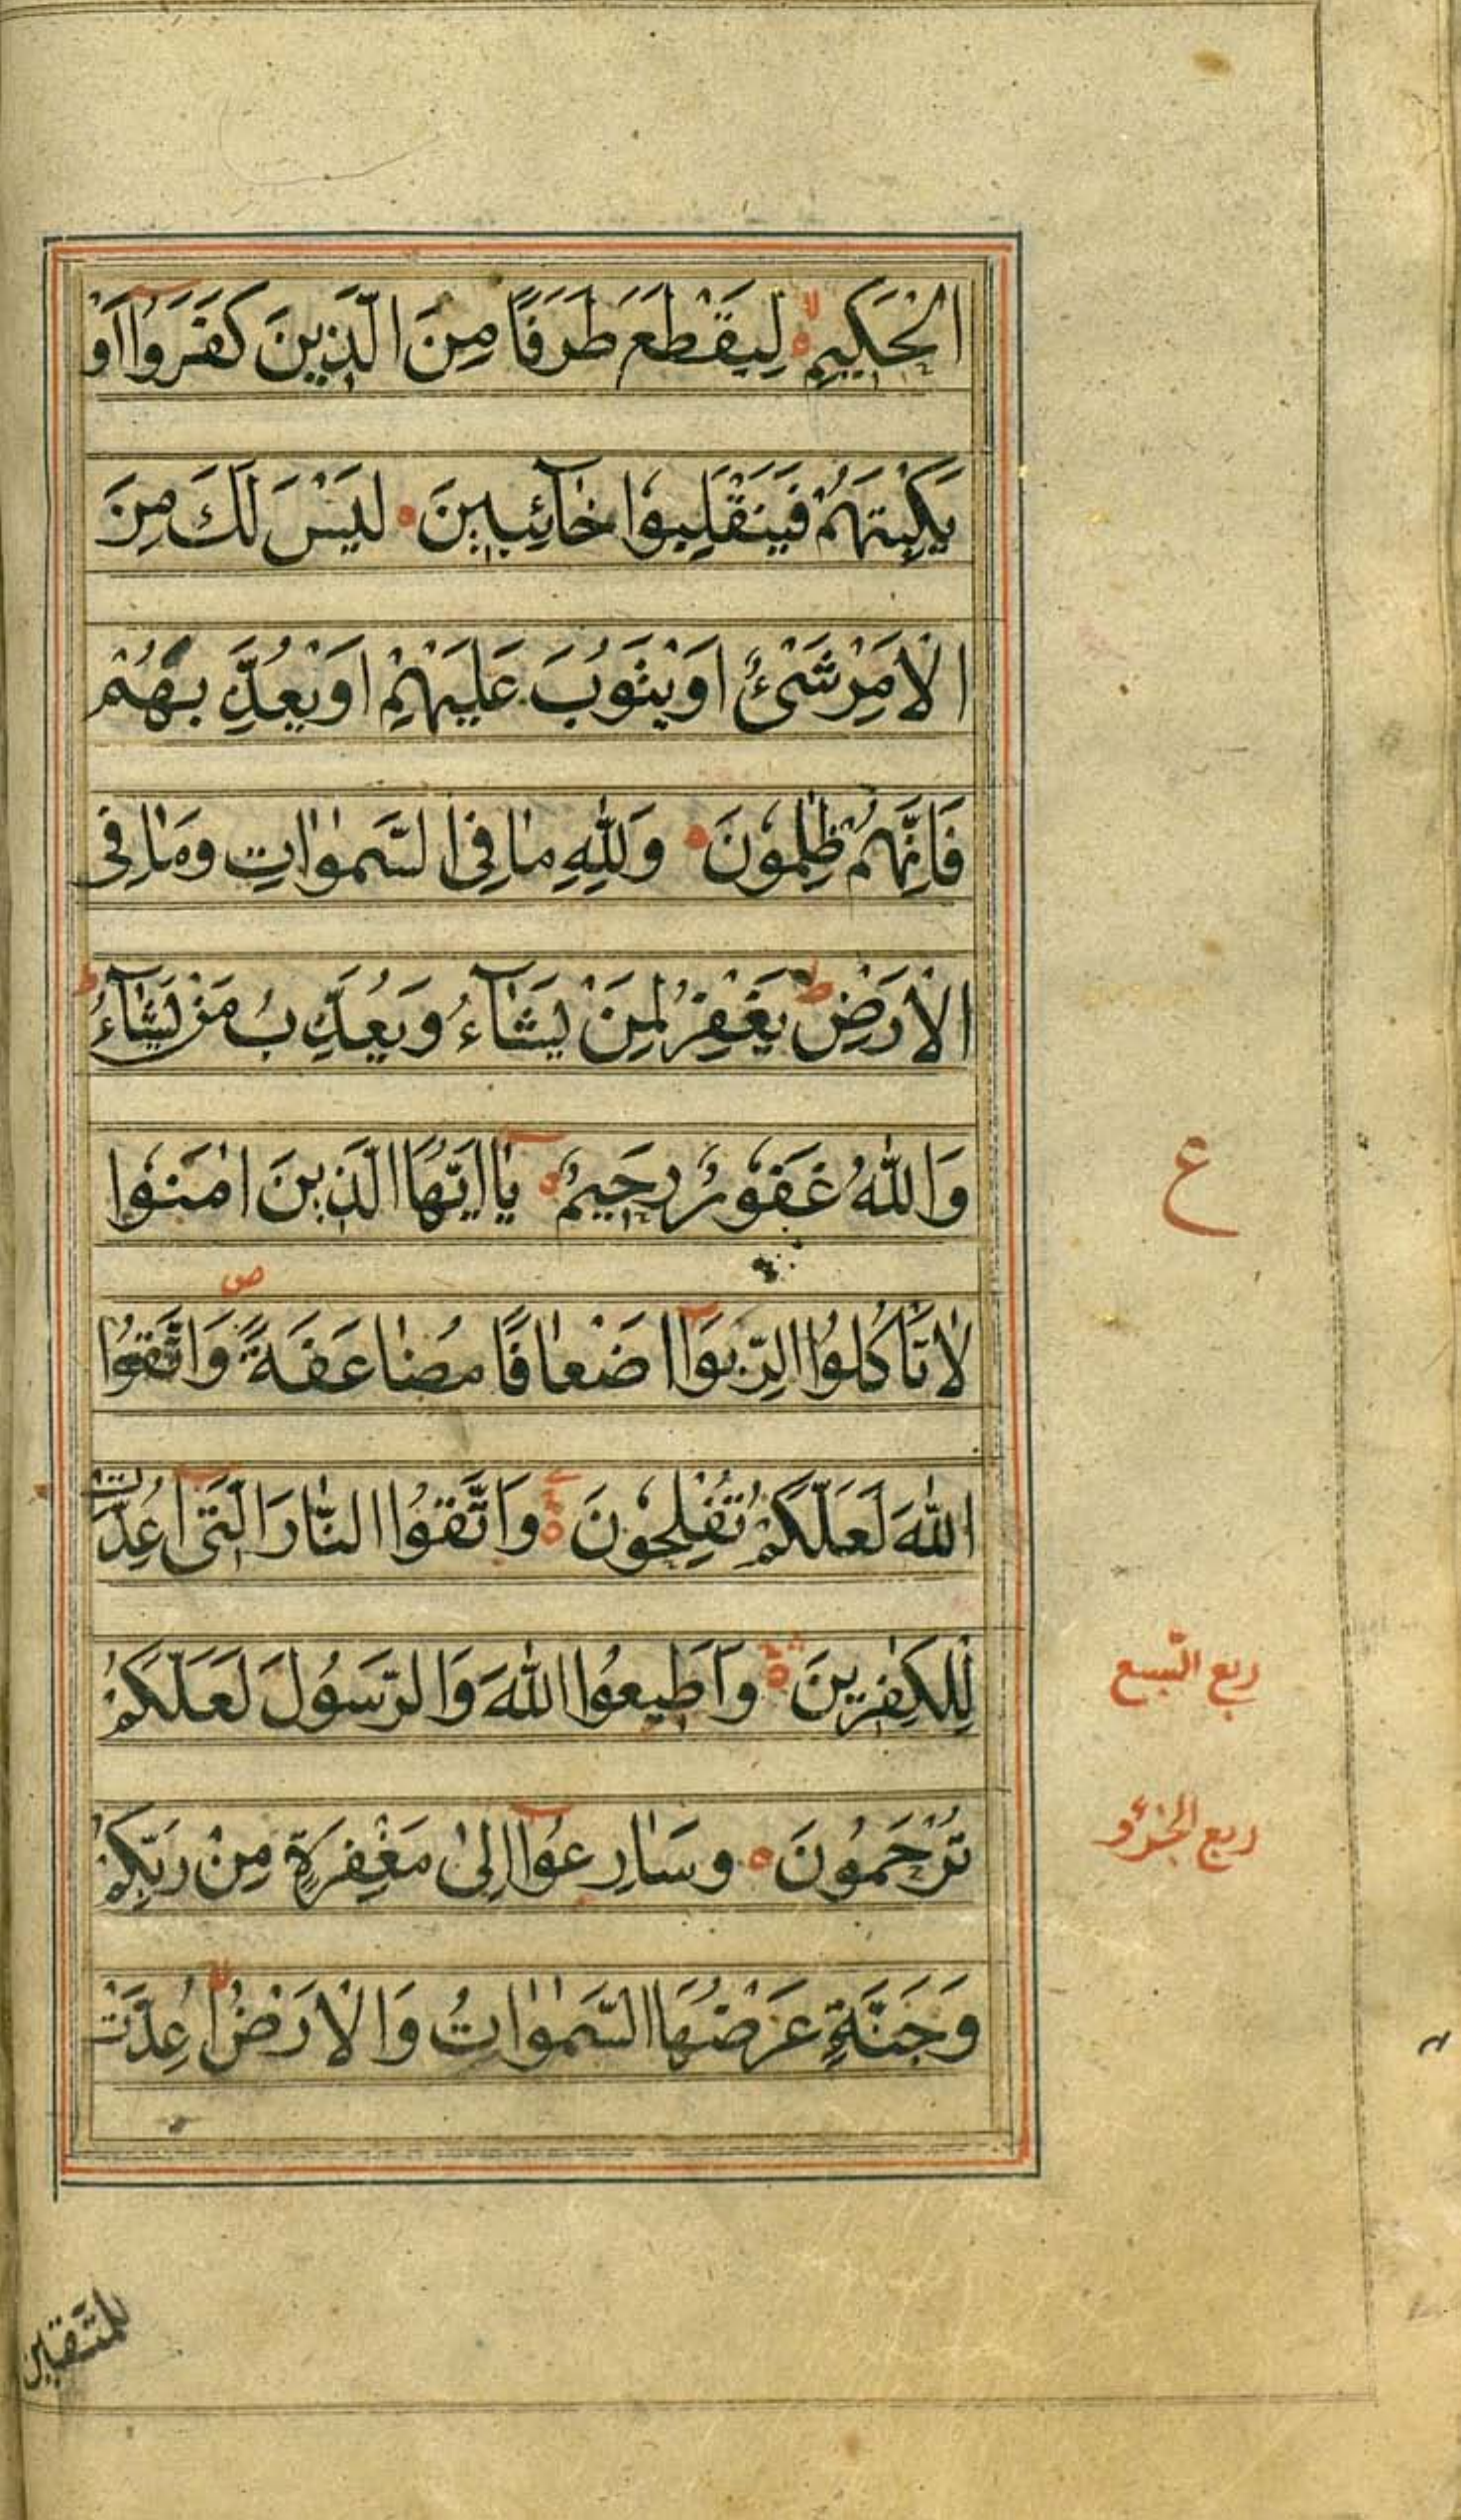 الْحَكِيمِ لِيَقْطَعَ طَرَفًا مِنَ الَّذِينَ كَفَرُوا أَوْ
يَكْبِتَهُمْ فَيَنْقَلِبُوا خَآئِبِينَ لَيْسَ لَكَ مِنَ
الْأَمْرِ شَيْءٌ أَوْ يَتُوبَ عَلَيْهِمْ أَوْ يُعَذِّبَهُمْ
فَإِنَّهُمْ ظٰلِمُونَ وَلِلّٰهِ مَا فِي السَّمٰوَاتِ وَمَا فِي
الْأَرْضِ ط يَغْفِرُ لِمَنْ يَشَآءُ وَيُعَذِّبُ مَنْ يَشَآءُ ط
وَاللّٰهُ غَفُورٌ رَحِيمٌ يَا أَيُّهَا الَّذِينَ اٰمَنُوا
ع
لَا تَأْكُلُوا الرِّبَوآ اَضْعَافًا مُضَاعَفَةً ص وَاتَّقُوا
اللّٰهَ لَعَلَّكُمْ تُفْلِحُونَ وَاتَّقُوا النَّارَ الَّتِي أُعِدَّتْ
لِلْكٰفِرِينَ وَأَطِيعُوا اللّٰهَ وَالرَّسُولَ لَعَلَّكُمْ
ربع السبع
تُرْحَمُونَ وَسَارِعُوآ إِلىٰ مَغْفِرَةٍ مِنْ رَبِّكُمْ
ربع الجزؤ
وَجَنَّةٍ عَرْضُهَا السَّمٰوَاتُ وَالْأَرْضُ لا أُعِدَّتْ
للمتقين